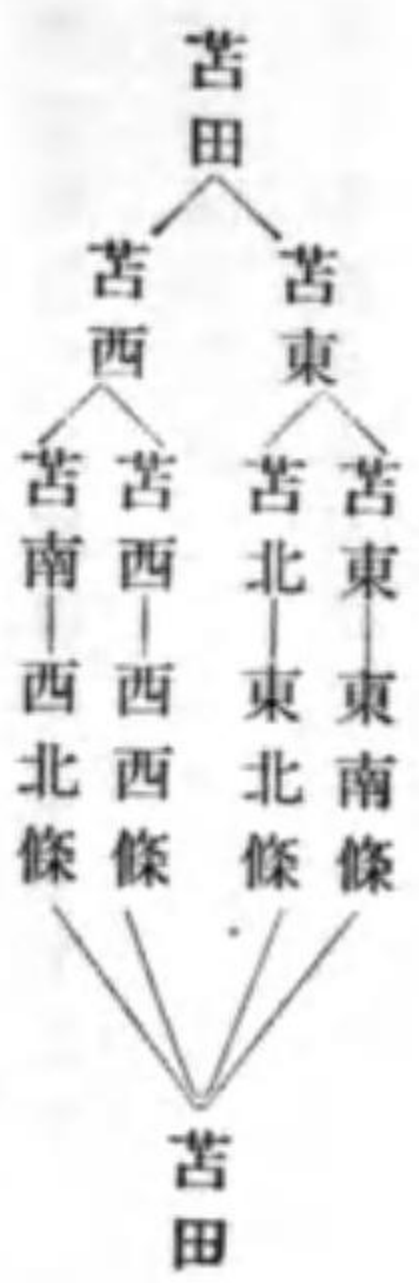 苫田
苫東
苫西
苫東
苫北
苫西
苫南
東南條
東北條
西西條
西北條
苫田